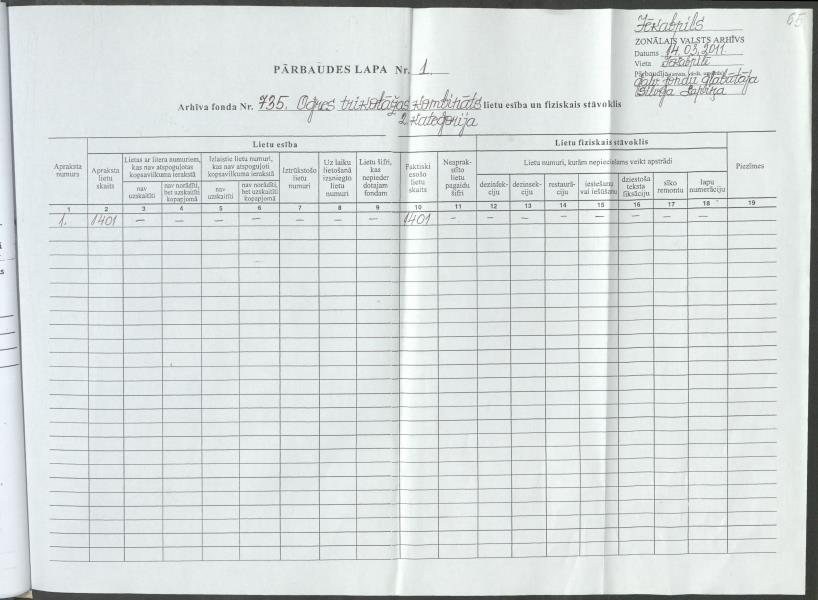 65
Jēkabpils
ZONĀLAIS VALSTS ARHĪVS
Datums 14.03.2011.
Vieta Jēkabpilī
Pārbaudīja
galv. fondu glabātāja
PĀRBAUDES LAPA Nr. 1.
Arhīva fonda Nr. 735. Ogres trikotāžas kombināts lietu esība un fiziskais stāvoklis
2. kategorija
Apraksta numurs
Lietu esība
Lietu fiziskais stāvoklis
Piezīmes
Apraksta lietu skaits
Lietas ar litera numuriem, kas nav atspoguļotas kopsavilkuma ierakstā
Izlaistie lietu numuri, kas nav atspoguļoti kopsavilkuma ierakstā
Iztrūkstošo lietu numuri
Uz laiku lietošanā izsniegto lietu numuri
Lietu šifri, kas nepieder dotajam fondam
Faktiski esošo lietu skaits
Neaprakstīto lietu pagaidu šifri
Lietu numuri, kurām nepieciešams veikt apstrādi
nav uzskaitīti
nav norādīti, bet uzskaitīti kopapjomā
nav uzskaitīti
nav norādīti, bet uzskaitīti kopapjomā
dezinfekciju
dezinsekciju
restaurāciju
iesiešanu vai iešūšanu
dziestoša teksta fiksāciju
sīko remontu
lapu numerāciju
1 2 3 4 5 6 7 8 9 10 11 12 13 14 15 16 17 18 19
1. 1401 – – – – – – – 1401 – – – – – – – –